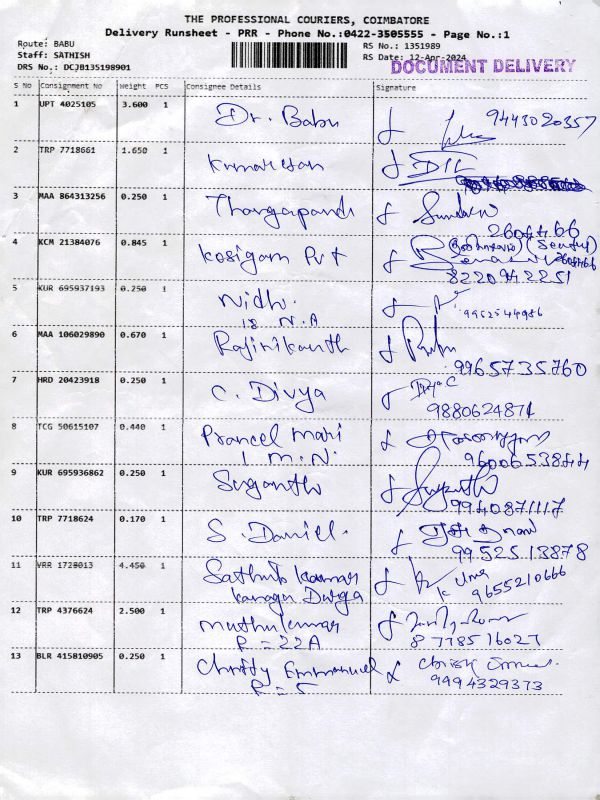 THE PROFESSIONAL COURIERS, COIMBATORE
Delivery Runsheet - PRR - Phone No.:0422-3505555 - Page No.:1
Route: BABU
Staff: SATHISH
DRS No.: DCJB135198901
RS No.: 1351989
RS Date: 12-Apr-2024
DOCUMENT DELIVERY
S No Consignment No Weight PCS Consignee Details Signature
1 UPT 4025105 3.600 1 Dr. Babu 9443020357
2 TRP 7718661 1.650 1 Kumaresan
3 MAA 864313256 0.250 1 Thangapandi
4 KCM 21384076 0.845 1 Kosigam Pvt
8220942251
5 KUR 695937193 0.250 1 Nidhi
18 N.A
6 MAA 106029890 0.670 1 Rajinikanth
9965735760
7 HRD 20423918 0.250 1 C. Divya Divya C
9880624871
8 TCG 50615107 0.440 1 Mari
I.M.N.
9600653844
9 KUR 695936862 0.250 1 Suganthi
9940871117
10 TRP 7718624 0.170 1 S. Daniel.
9952513878
11 VRR 1728013 4.450 1 Sathish Kumar K Uma
Kanaga Durga 9655210666
12 TRP 4376624 2.500 1 Muthukumar
R = 22A 8778516027
13 BLR 415810905 0.250 1 Christy Emmanuel
R = 5 9994329373